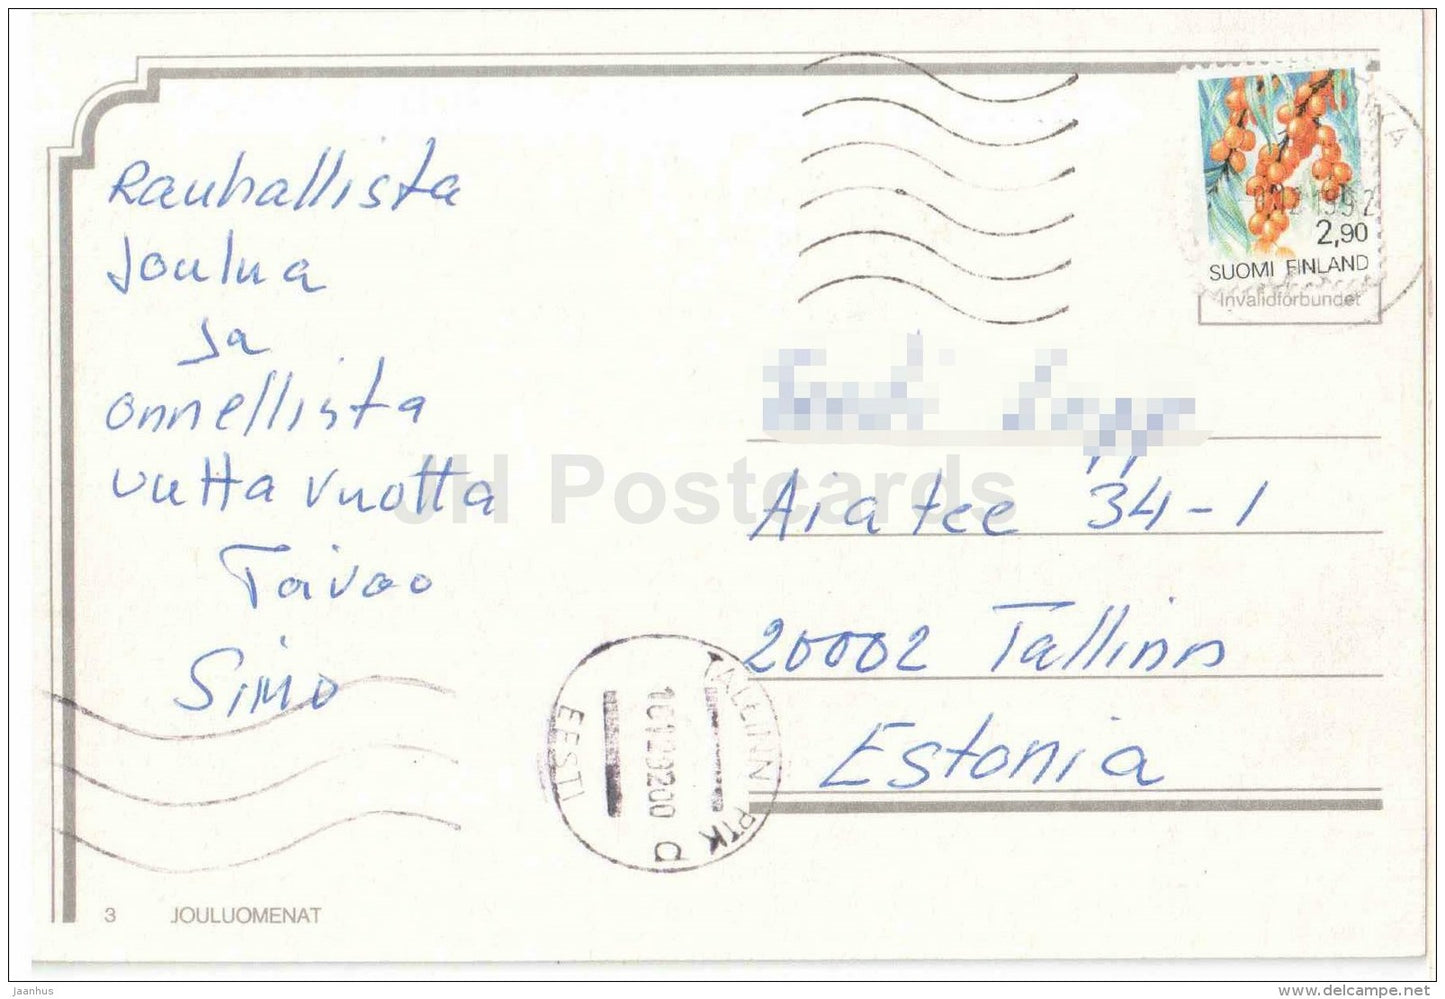 Rauhallista
Joulua
ja
onnellista
uutta vuotta
Toivoo
Simo
3 JOULUOMENAT
1992
2,90
SUOMI FINLAND
Invalidförbundet
Aiatee 34-1
20002 Tallinn
Estonia
TALLINN PTK
EESTI
JH Postcards
jaanhus
www.delcampe.net